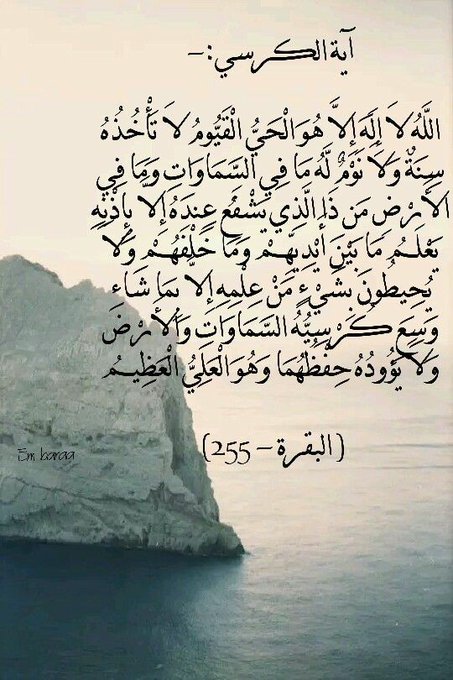 آية الكرسي :–
اللَّهُ لاَ إِلَهَ إِلاَّ هُوَ الْحَيُّ الْقَيُّومُ لاَ تَأْخُذُهُ
سِنَةٌ وَلاَ نَوْمٌ لَّهُ مَا فِي السَّمَاوَاتِ وَمَا فِي
الأَرْضِ مَن ذَا الَّذِي يَشْفَعُ عِنْدَهُ إِلاَّ بِإِذْنِهِ
يَعْلَمُ مَا بَيْنَ أَيْدِيهِمْ وَمَا خَلْفَهُمْ وَلاَ
يُحِيطُونَ بِشَيْءٍ مِّنْ عِلْمِهِ إِلاَّ بِمَا شَاء
وَسِعَ كُرْسِيُّهُ السَّمَاوَاتِ وَالأَرْضَ
وَلاَ يَؤُودُهُ حِفْظُهُمَا وَهُوَ الْعَلِيُّ الْعَظِيمُ
(البقرة – 255)
Em baraa